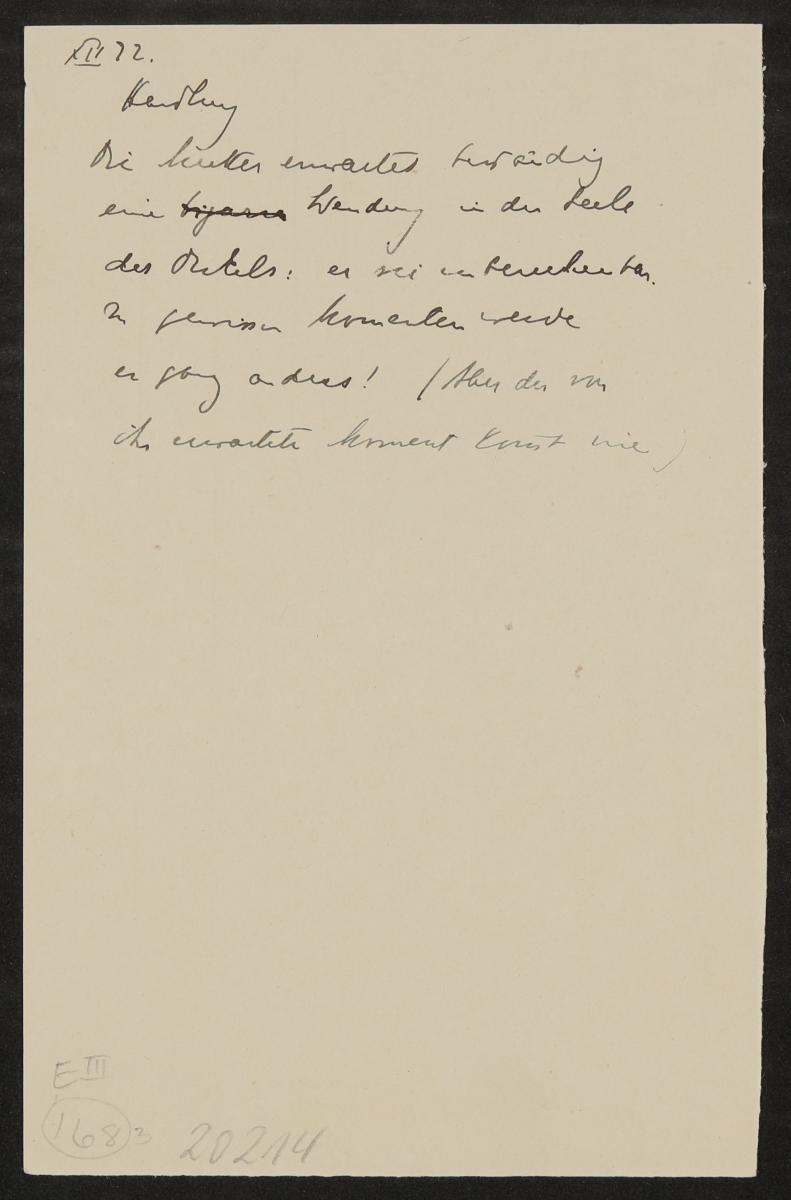 XII 22.
Handlung
Die Mutter erwartet beständig
eine bizarre Wendung in der Seele
des Onkels: er sei unberechenbar.
In gewissen Momenten werde
er ganz anders! (Aber der von
ihr erwartete Moment kommt nie)
E III
168 3
20214